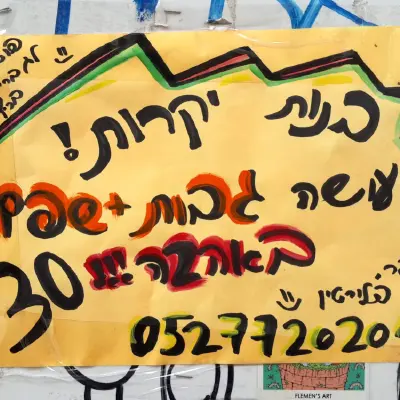 בנות יקרות!
עושה גבות + שפם
באהבה!!!
30
פלורנטין
0527720204
FLEMEN'S ART